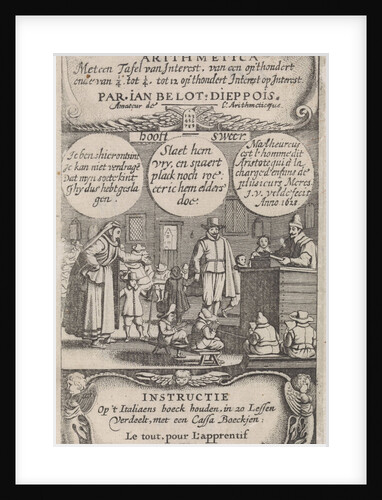 ARITHMETICA
Met een Tafel van Interest, van een op't hondert
ende van ¼ tot ¼ tot 12 op't hondert Interest op Interest.
PAR. IAN BELOT: DIEPPOIS.
Amateur de L'Arithmeticque.
hooft sweer
Ic ben hier ontrint
kan niet verdragē
Dat myn soete kint
Ghy dus hebt gesla
gen.
Slaet hem
vry, en spaert
plack noch roe
eer ic hem elders
doe
Malheureux
est l'homme dit
Aristote qui a la
charge d'enfans de
plusieurs Meres
J.V. velde fecit
Anno 1628
INSTRUCTIE
Op 't Italiaens boeck houden, in 20 Lessen
Verdeelt, met een Cassa Boeckjen:
Le tout, pour L'apprentif